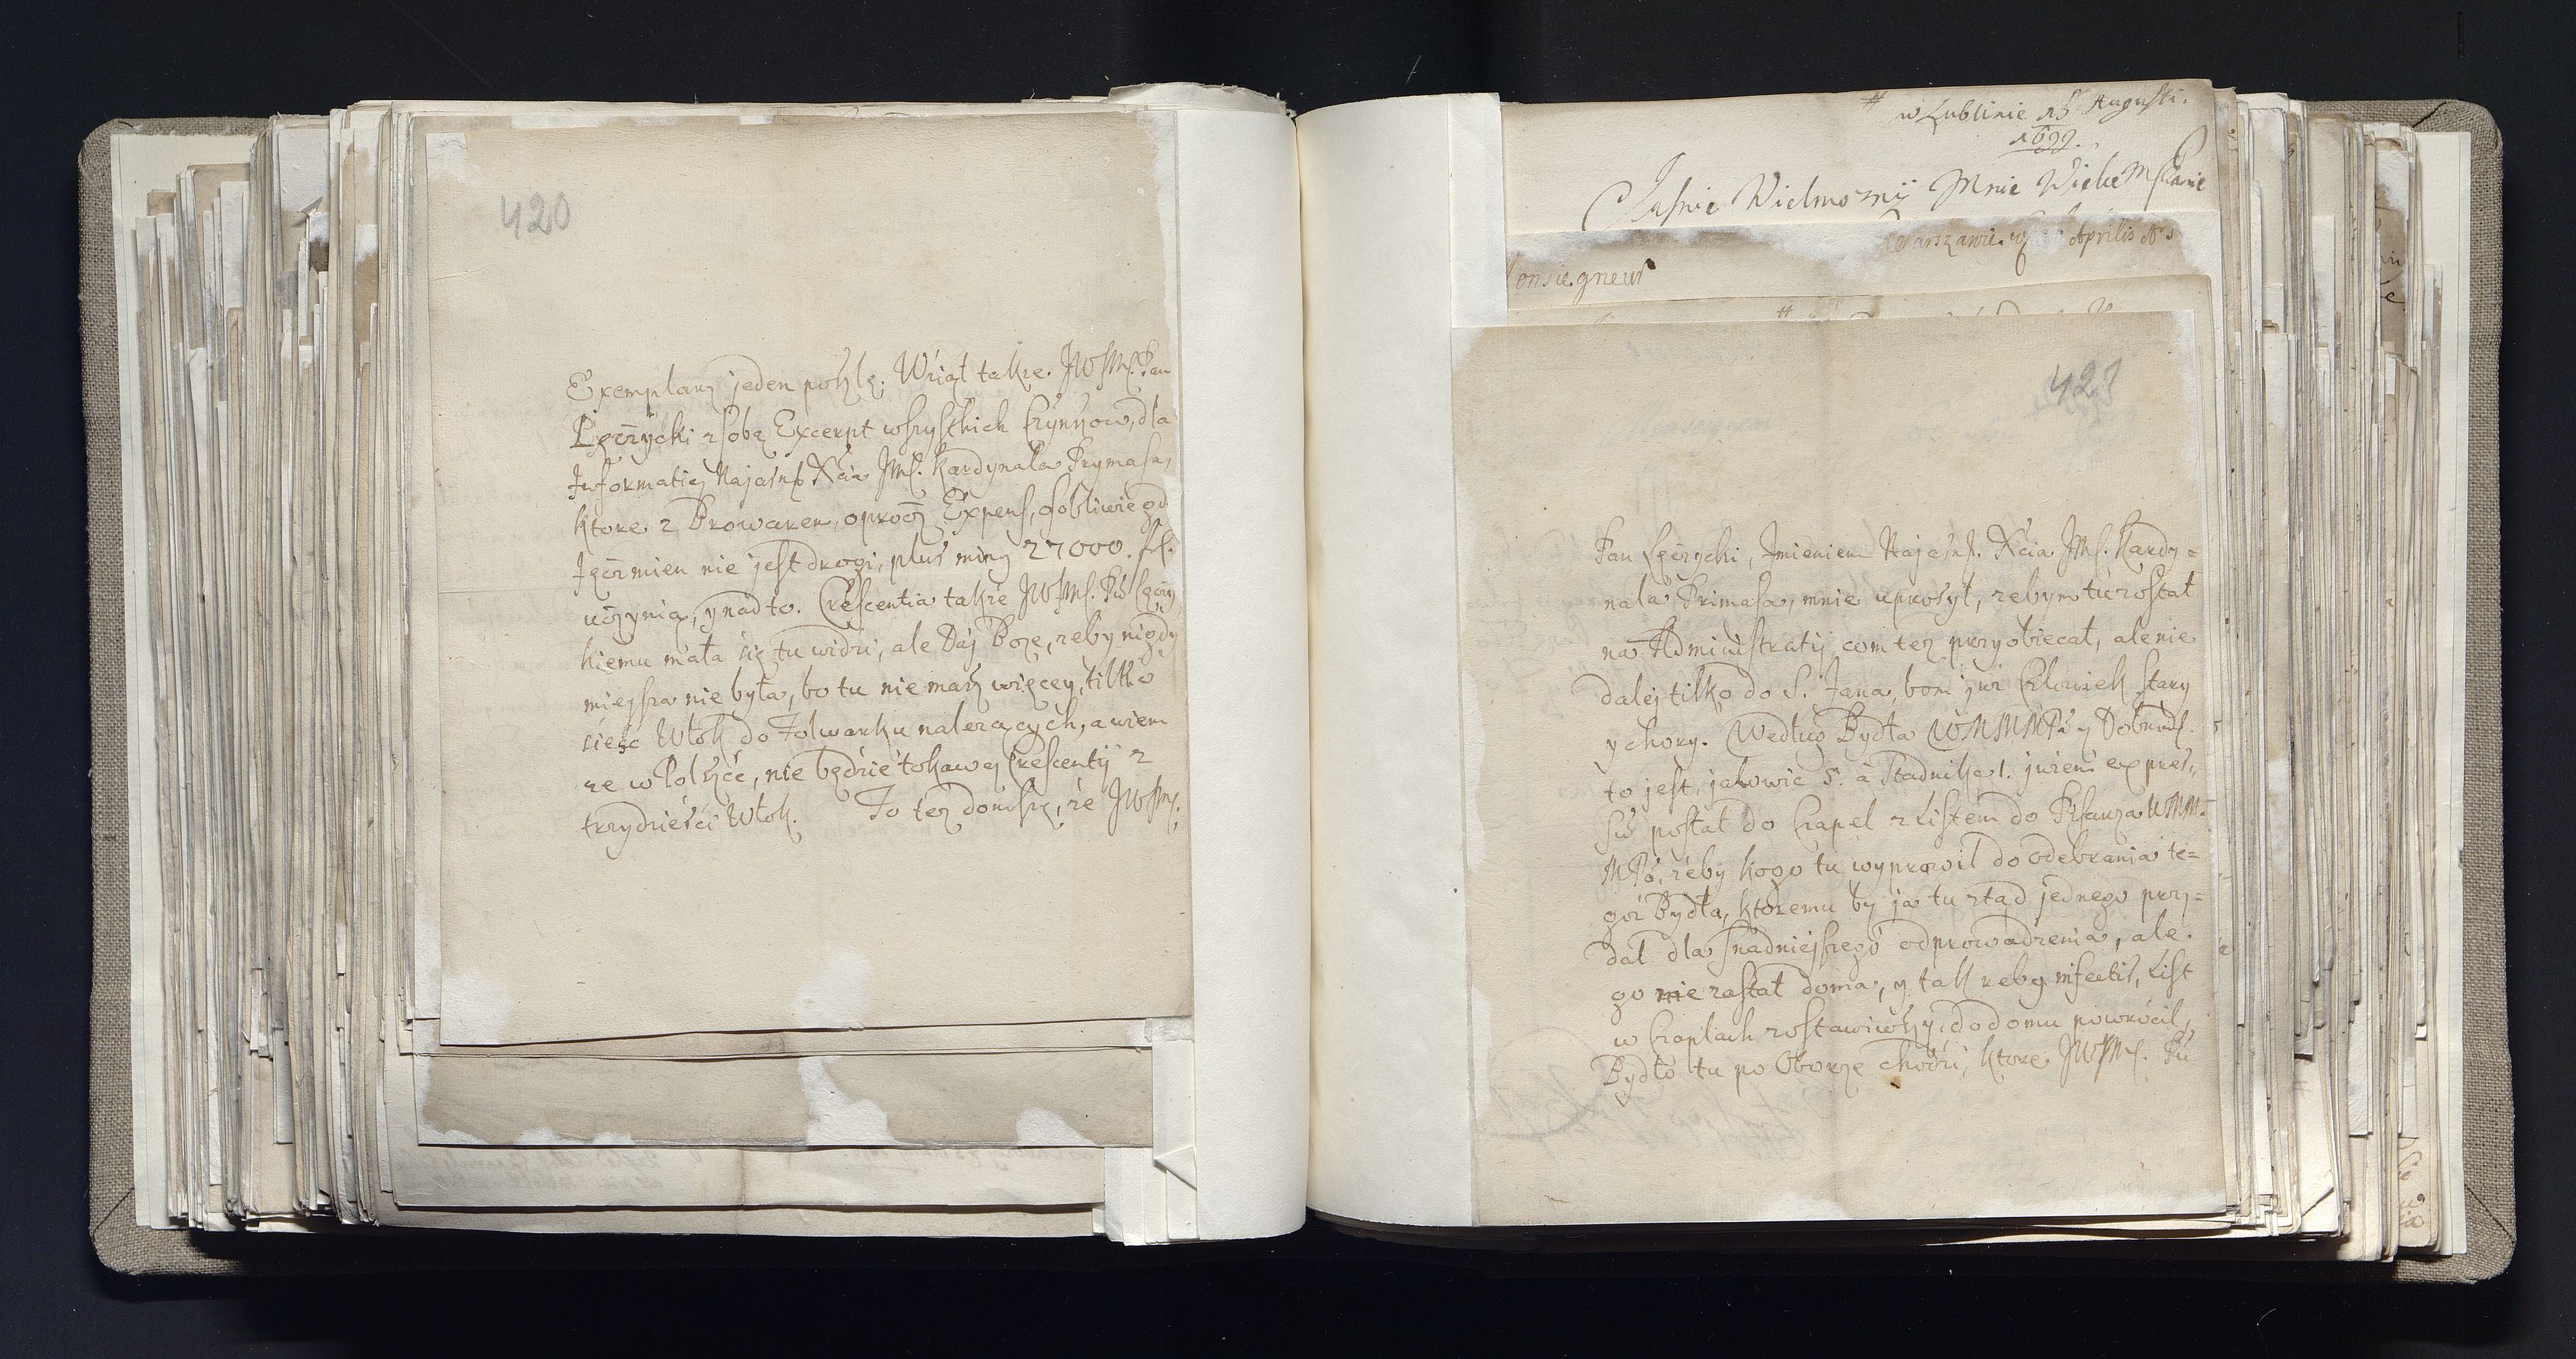 420
Exemplarz jeden poszlę; Wziąt takze. JWJMś. Pan
Łęczycki z sobą Excerpt wszystkich Czynszow, dla
Informatiey Najaśn. Xcia JMś. Kardynała Prymasa,
ktore z Browarem, oprocz Expens, osobliwie gd
Jęczmien nie jest drogi, plus minꝰ 27000. fl.
uczynią, y nadto. Crescentia takze JWJMś. Pu Łęczy
kiemu mała się tu widzi, ale Daj Boze, zeby nigdy
miejsza nie była, bo tu niemasz więcey, tilko
sieść Włok do Folwarku nalezących, a wiem
ze w Polszcze, nie będzie tokawey Crescentij z
trzydzieści Włok. To tez donoszę, ze JWJMś.
# w Lublinie 15 Augusti.
1699.
Jasnie Wielmozny Mnie Wielce Mści Panie
Warszawie Aprilis
onsiegneur
421
Pan Łęczycki, Imieniem Najaśn. Xcia JMś. Kardy=
nała Primasa, mnie uprosył, zebym tu został
na Administratij, com tez przyobiecał, ale nie
dalej tilko do S. Jana, bom juz Człowiek stary
y chory. Według Bydła WMMMPa y Dobrodz.
to jest, jałowic 5. a Stadnika 1. juzem expres„
sus posłał do Czapel z Listem do Pisarza WMM.
MPa, zeby kogo tu wyprawił do odebrania te=
goz Bydła, ktoremu by ja tu ztąd jednego przy=
dał dla snadniejszego odprowadzenia, ale.
go nie zastał doma, y tak rebꝰ infectis, List
w Czaplach zostawiwszy, do domu powrócił,
Bydło tu po Oborze chodzi, ktore JWJMś. Pu